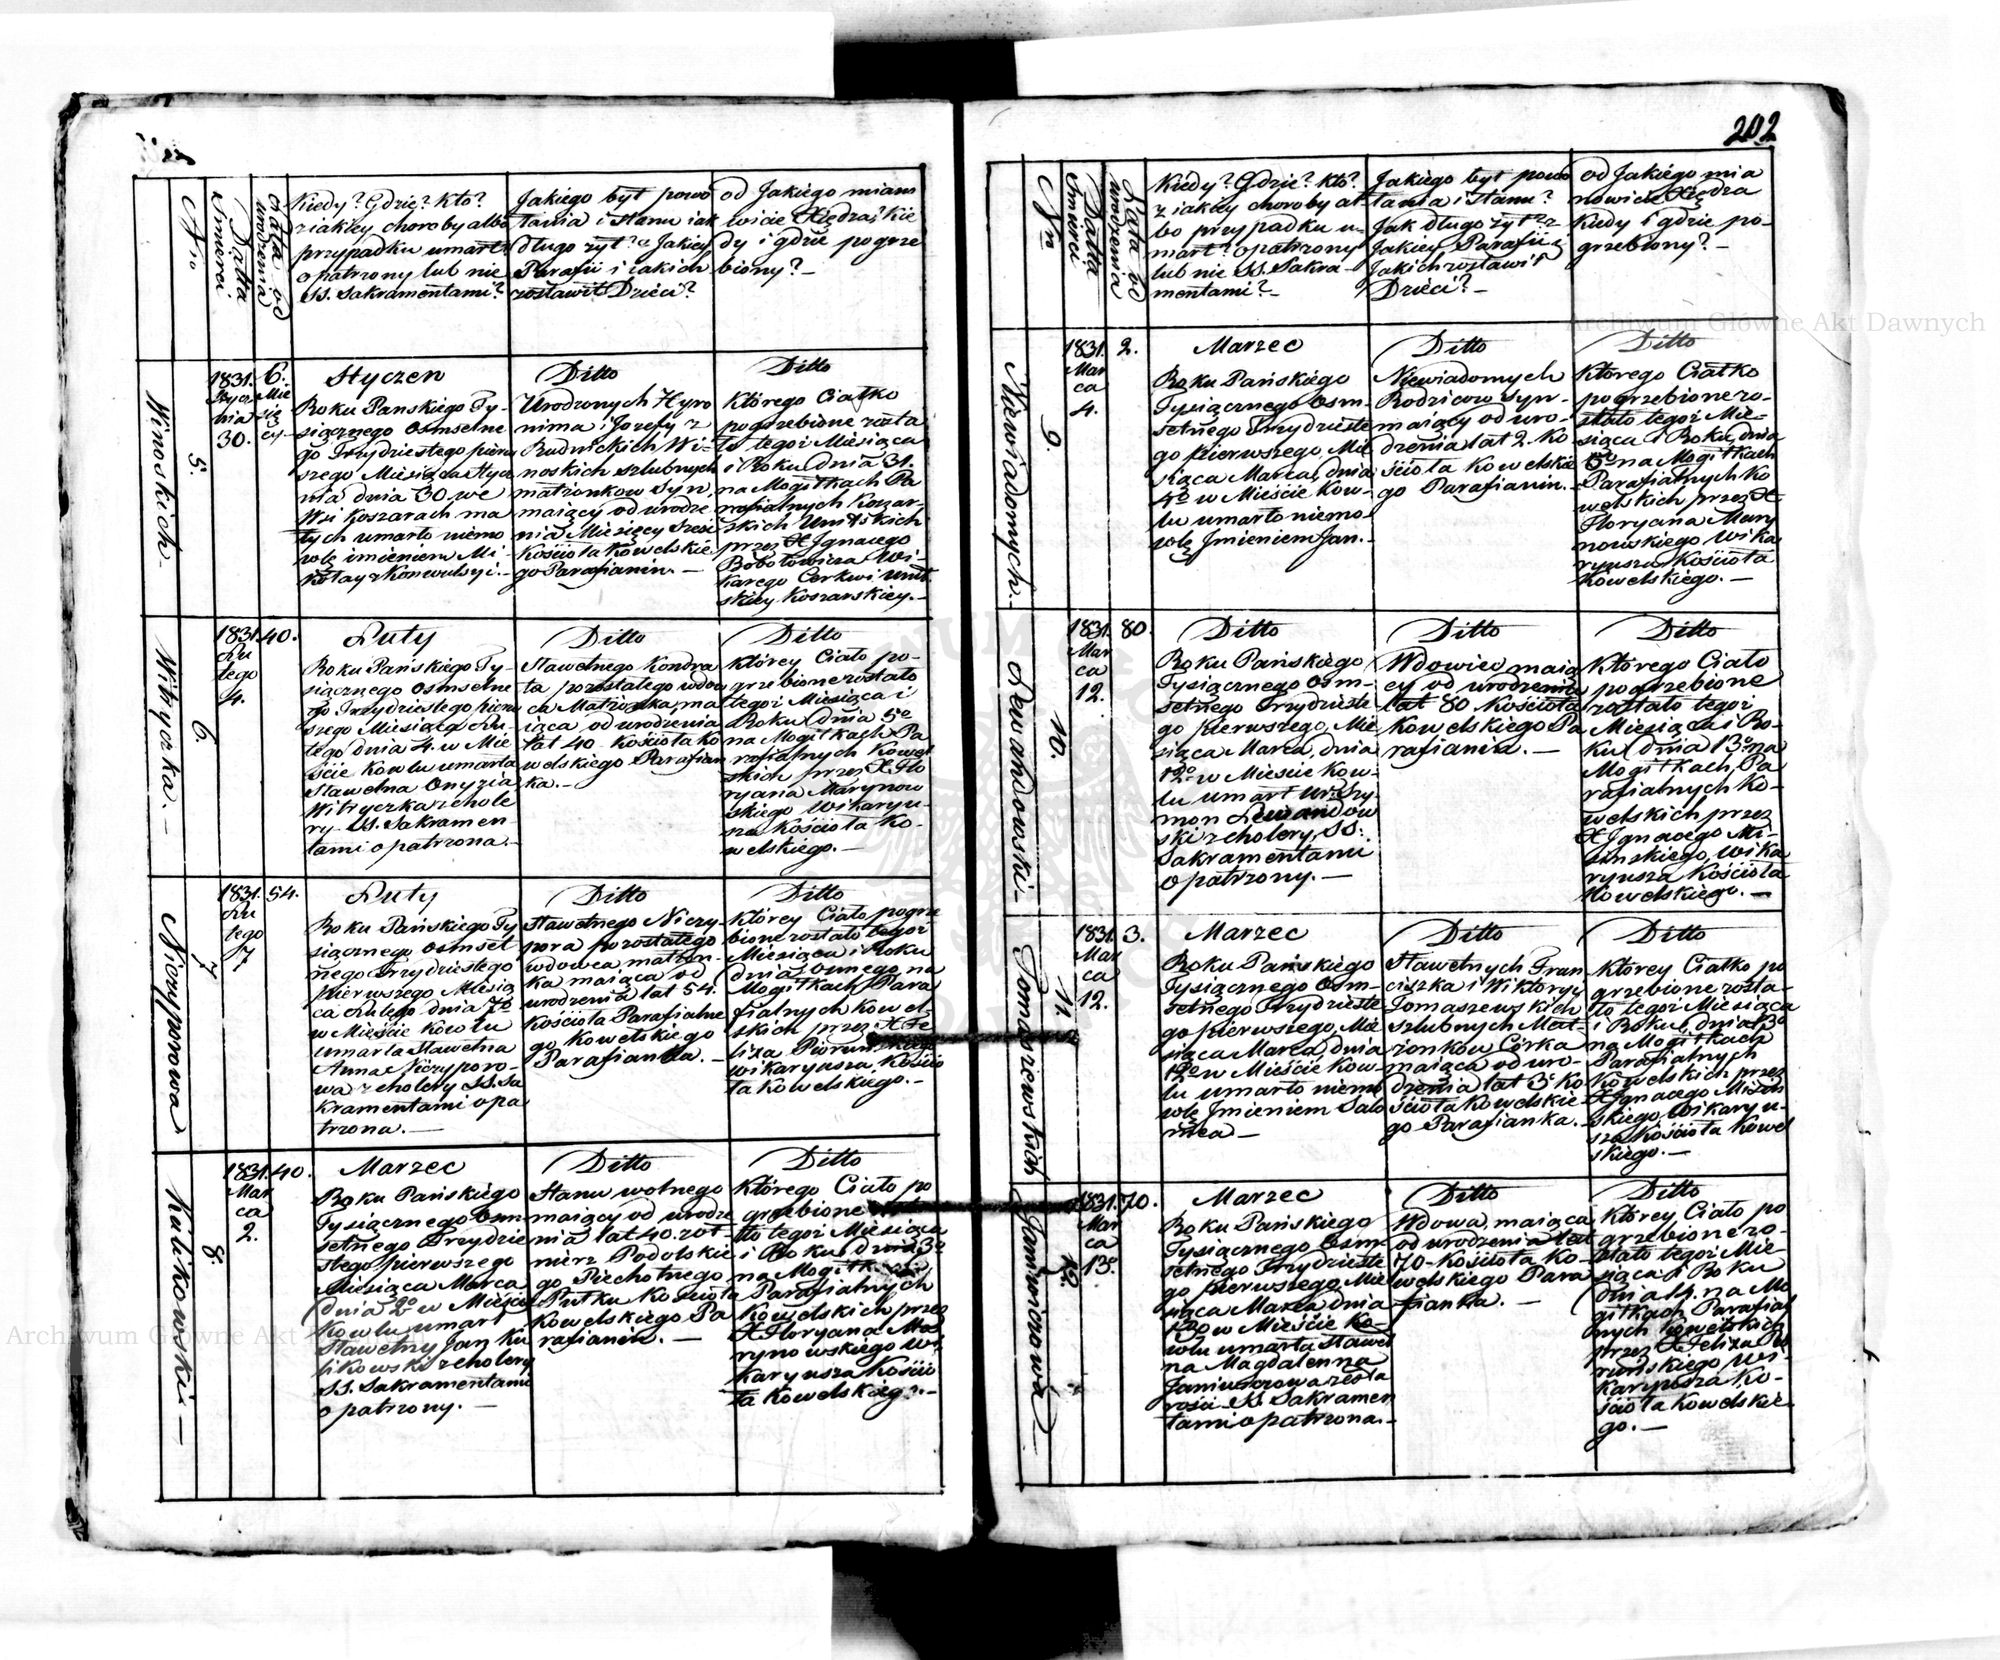 202
Nro
Datta
Śmierci
Lata od
urodzenia
Kiedy? Gdzie? Kto?
z iakiey choroby albo
przypadku umarł?
opatrzony lub nie
SS. Sakramentami?
Jakiego był powo
łania i stanu iak
długo żył? a Jakiey
Parafii i iakich
zostawił Dzieci?
od Jakiego miano
wicie Xiędza, kie
dy i gdzie pogrze
biony? –
Winoskich.
5.
1831.
Stycz
nia
30.
6.
Mie
się
cy.
Styczen
Roku Panskiego Ty-
siącznego Osmsetne
go Trzydziestego pierw
szego Miesiąca Stycz
nia dnia 30 we
Wsi Koszarach ma
łych umarło niemo
wlę imieniem Mi-
kołay z Konwulsyi. –
Ditto
Urodzonych Hyro
nima i Jozefy z
Rudnickich Wi-
noskich szlubnych
małżonkow Syn,
maiący od urodze
nia Miesięcy Sześć
Kościoła Kowelskie
go Parafianin. –
Ditto
Którego Ciałko
pogrzebione zosta
ło tegoż Miesiąca
i Roku dnia 31.
na Mogiłkach Pa
rafialnych Koszar-
skich Unitskich
przez X Jgnacego
Bobołowicza Wi-
karego Cerkwi Unit
skiey Koszarskiey. –
Witryczka. –
6.
1831.
Lu
tego
4.
40.
Luty
Roku Pańskiego Ty-
siącznego Osmsetne
go Trzydziestego pierw
szego Miesiąca Lu-
tego dnia 4. w Mie
ście Kowlu umarła
Sławetna Onyzia
Witryczka z chole
ry SS. Sakramen-
tami opatrzona. –
Ditto
Sławetnego Kondra
ta pozostałego wdow
ca Małżonka, ma
iąca od urodzenia
lat 40. Kościoła Ko
welskiego Parafian
ka. –
Ditto
Którey Ciało po-
grzebione zostało
tegoż Miesiąca i
Roku dnia 5o
na Mogiłkach Pa
rafialnych Kowel
skich przez X. Flo
ryana Marynow
skiego Wikaryu-
sza Kościoła Ko-
welskiego. –
Niczyporowa
7
1831.
Lu
tego
7
54.
Luty
Roku Pańskiego Ty
siącznego Osmset
nego Trzydziestego
pierwszego Miesią
ca Lutego dnia 7o
w Mieście Kowlu
umarła Sławetna
Anna Niczyporo-
wa z cholery SS. Sa
kramentami opa
trzona. –
Ditto
Sławetnego Niczy-
pora pozostałego
wdowca małżon-
ka maiąca od
urodzenia lat 54.
Kościoła Parafialne
go Kowelskiego
Parafianka. –
Ditto
Którey Ciało pogrze
bione zostało tegoż
Miesiąca i Roku
dnia osmego na
Mogiłkach Para
fialnych Kowel-
skich przez X Fe
lixa
Wikaryusza Kościo
ła Kowelskiego. –
Kulikowski –
8.
1831.
Mar
ca
2.
40.
Marzec
Roku Pańskiego
Tysiącznego Osm
setnego Trzydzie
stego pierwszego
Miesiąca Marca
dnia 2o w Mieście
Kowlu umarł
Sławetny Jan Ku
likowski z cholery
SS. Sakramentami
opatrzony. –
Ditto
Stanu wolnego
maiący od urodze
nia lat 40. żoł-
nierz Podolskie
go Piechotnego
Pułku Kościoła
Kowelskiego Pa
rafianin. –
Ditto
Którego Ciało po
grzebione
ło tegoż Miesiąca
i Roku dnia 3o
na
Parafialnych
Kowelskich przez
X Floryana Ma
rynowskiego Wi
karyusza Kościo
ła Kowelskiego. –
Nro
Datta
Śmierci
Lata od
urodzenia
Kiedy? Gdzie? Kto?
z iakiey choroby al-
bo przypadku u-
marł? opatrzony
lub nie SS. Sakra-
mentami? –
Jakiego był powo
łania i stanu?
Jak długo żył? z
Jakiey Parafii i
Jakich zostawił
Dzieci? –
od Jakiego mia
nowicie Xiędza
Kiedy i gdzie po-
grzebiony? –
Niewiadomych. –
9.
1831.
Mar
ca
4.
2.
Marzec
Roku Pańskiego
Tysiącznego Osm-
setnego Trzydzieste
go pierwszego, Mie
siąca Marca, dnia
4o w Mieście Kow-
lu umarło niemo-
wlę Jmieniem Jan. –
Ditto
Niewiadomych
Rodzicow Syn-
maiący od uro-
dzenia lat 2. Ko
ścioła Kowelskie
go Parafianin. –
Ditto
Którego Ciałko
pogrzebione zo-
stało tegoż Mie-
siąca i Roku dnia
5o na Mogiłkach
Parafialnych Ko
welskich przez X
Floryana Mary
nowskiego Wika
ryusza Kościoła
Kowelskiego. –
Lewandowski –
10.
1831.
Mar
ca
12.
80.
Ditto
Roku Pańskiego
Tysiącznego Osm-
setnego Trzydzieste
go pierwszego, Mie
siąca Marca, dnia
12o w Mieście Kow-
lu umarł Ur: Szy-
mon Lewandow
ski z cholery, SS:
Sakramentami
opatrzony. –
Ditto
Wdowiec maią
cy od urodzenia
lat 80 Kościoła
Kowelskiego Pa
rafianin. –
Ditto
Którego Ciało
pogrzebione
zostało tegoż
Miesiąca i Ro-
ku dnia 13o na
Mogiłkach Pa
rafialnych Ko-
welskich przez
X Jgnacego Mi-
sinskiego, Wika
ryusza Kościoła
Kowelskiego. –
Tomaszewskich
11.
1831.
Mar
ca
12.
3.
Marzec
Roku Pańskiego
Tysiącznego Osm-
setnego Trzydzieste
go pierwszego, Mie
siąca Marca, dnia
12o w Mieście Kow-
lu umarło niemo
wlę Jmieniem Salo
mea –
Ditto
Sławetnych Fran
ciszka i Wiktoryi
Tomaszewskich
Szlubnych Mał-
żonkow Córka
maiąca od uro-
dzenia lat 3. Ko
ścioła Kowelskie
go Parafianka. –
Ditto
Którey Ciałko po
grzebione zosta-
ło tegoż Miesiąca
i Roku, dnia 13o
na Mogiłkach
Parafialnych
Kowelskich przez
X Jgnacego Misin
skiego, Wikaryu-
sza Kościoła Kowel
skiego. –
12
1831.
Mar
ca
13.
70.
Marzec
Roku Pańskiego
Tysiącznego Osm-
setnego Trzydzieste
go pierwszego, Mie
siąca Marca dnia
13o w Mieście Ko-
wlu umarła Sławet
na Magdalenna
ze sta
rości SS. Sakramen
tami opatrzona. –
Ditto
Wdowa, maiąca
od urodzenia lat
70 Kościoła Ko-
welskiego Para
fianka. –
Ditto
Którey Ciało po
grzebione zo-
stało tegoż Mie-
siąca i Roku
dnia 14. na Mo
giłkach Parafial
nych Kowelskich
przez X Felixa
Wi-
karyusza Ko-
ścioła Kowelskie
go. –
Archiwum Główne Akt Dawnych
Archiwum Główne Akt Dawnych